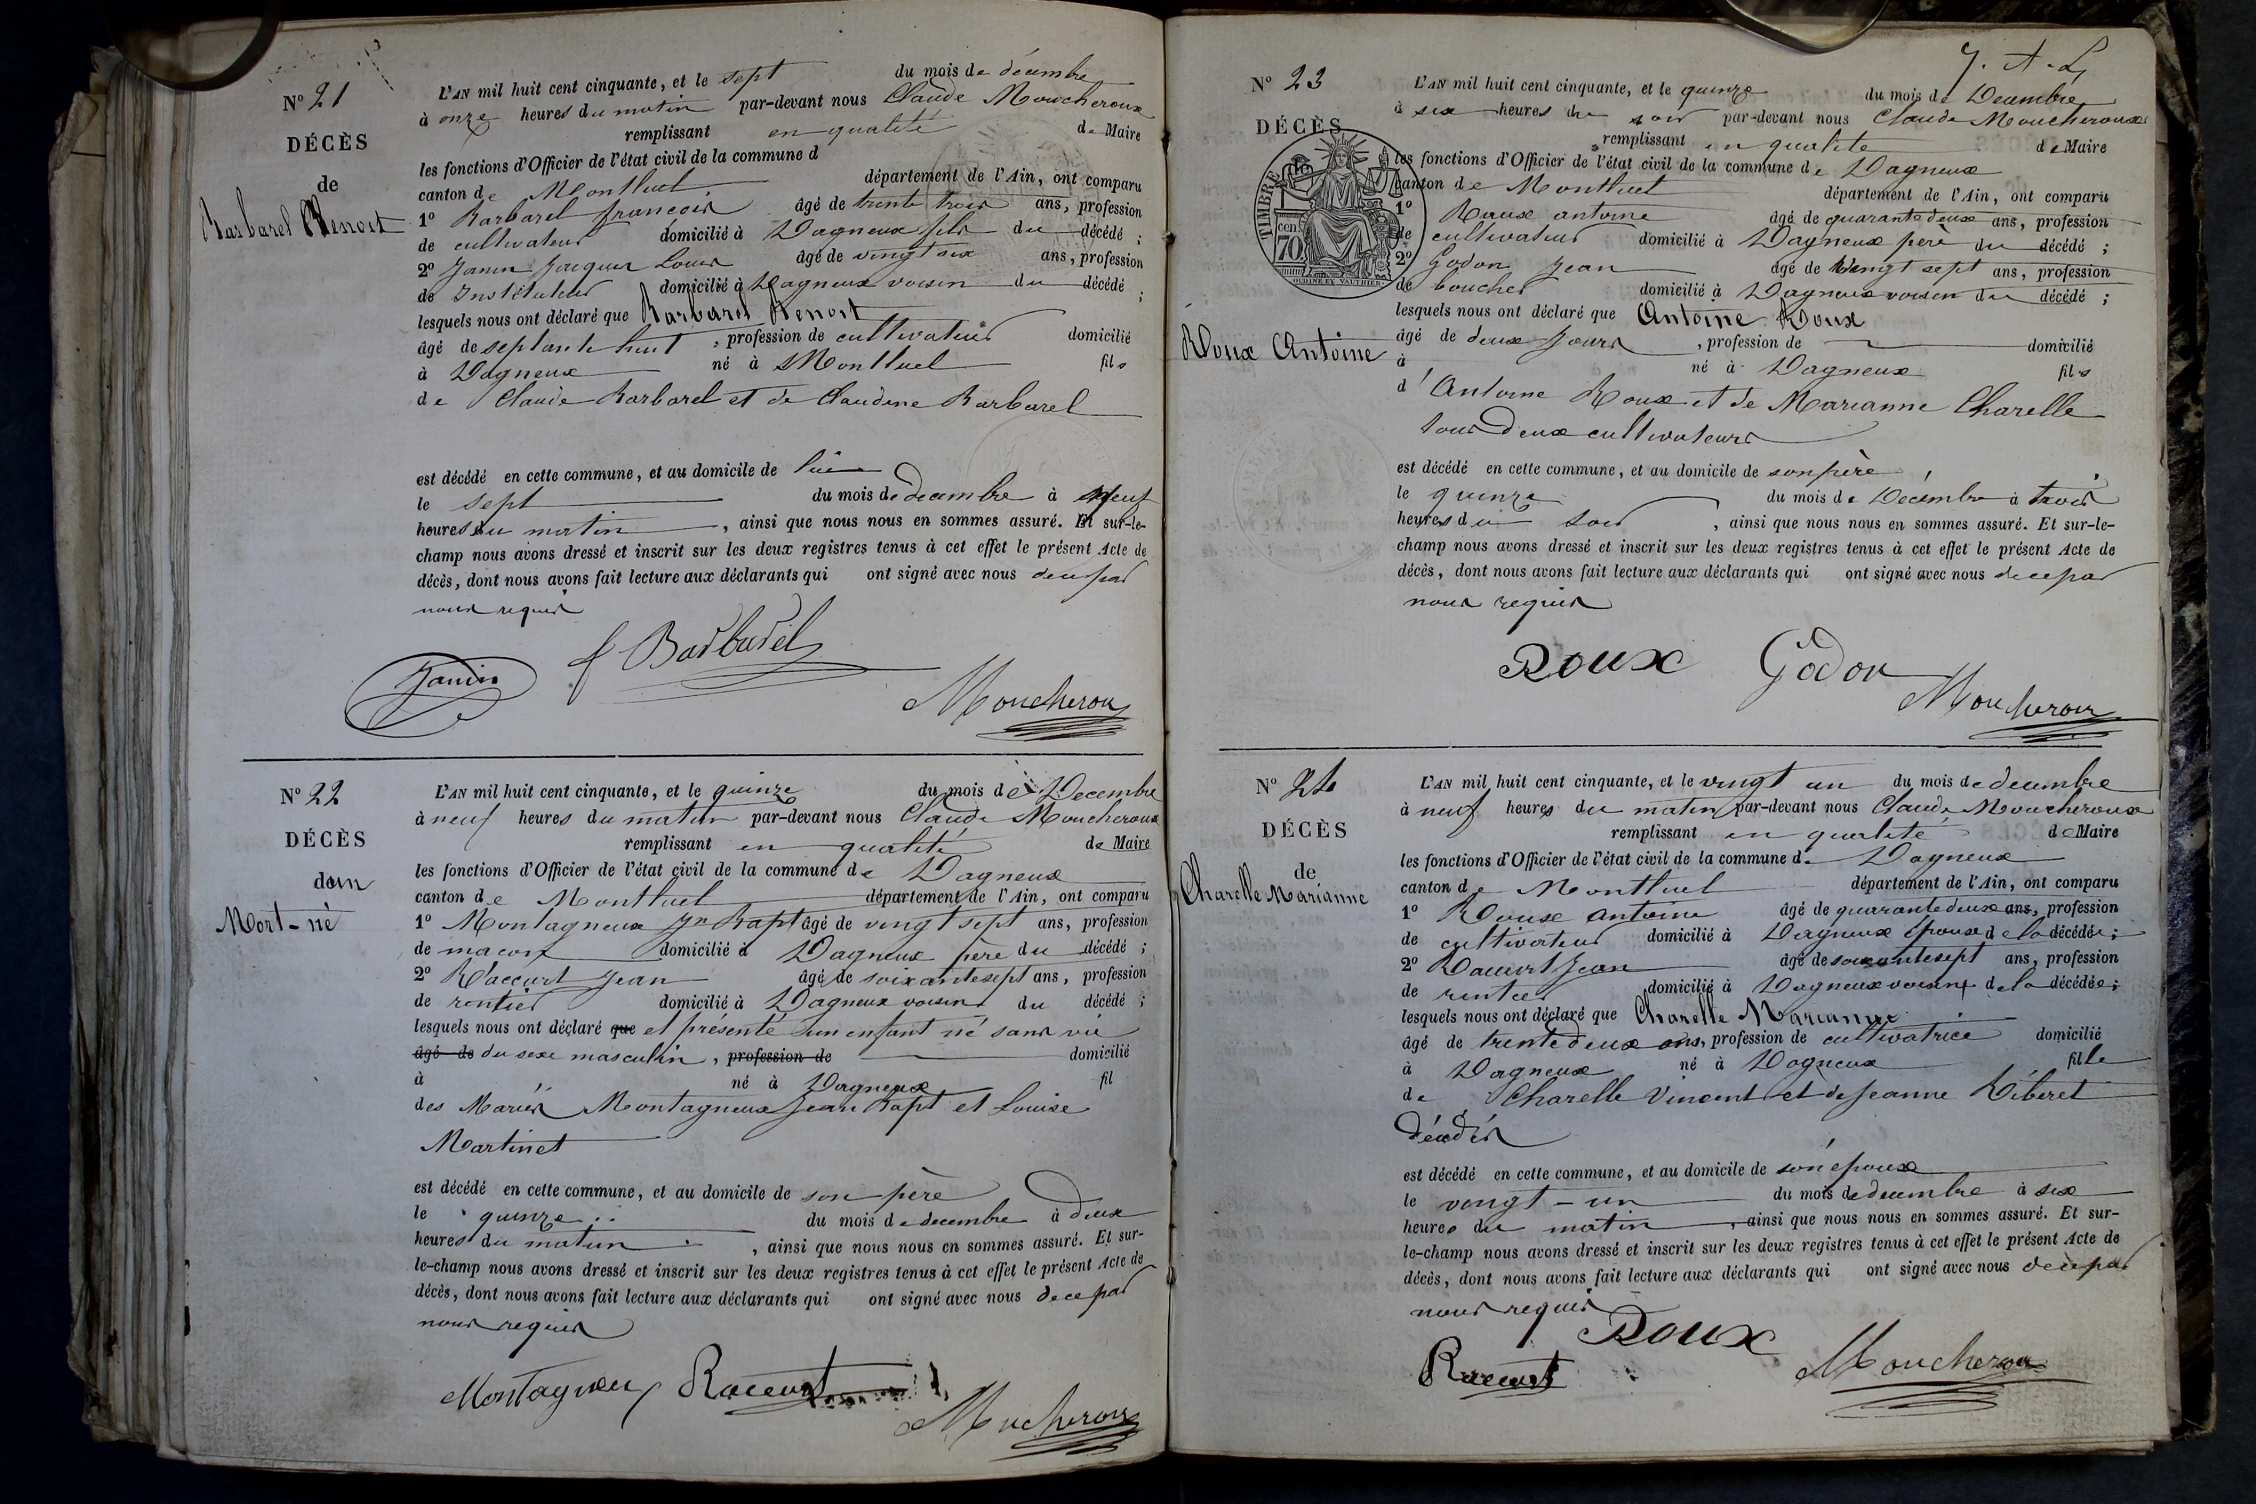 N° 21
DÉCÈS
de
Barbarel Benoit
L'AN mil huit cent cinquante, et le sept du mois de décembre
à onze heures du matin par-devant nous Claude Moucheroux
remplissant en qualité de Maire
les fonctions d'Officier de l'état civil de la commune d
canton de Montluel département de l'Ain, ont comparu
1° Barbarel francois âgé de trente trois ans, profession
de cultivateur domicilié à Dagneux fils du décédé ;
2° Janin Jacques Louis âgé de vingt six ans, profession
de Instituteur domicilié à Dagneux voisin du décédé ;
lesquels nous ont déclaré que Barbarel Benoit
âgé de septante huit , profession de cultivateur domicilié
à Dagneux né à Montluel fils
de Claude Barbarel et de Claudine Barbarel
est décédé en cette commune, et au domicile de lui
le sept du mois de decembre à neuf
heures du matin , ainsi que nous nous en sommes assuré. Et sur-le-
champ nous avons dressé et inscrit sur les deux registres tenus à cet effet le présent Acte de
décès, dont nous avons fait lecture aux déclarants qui ont signé avec nous de ce par
nous requis
Janin f Barbarel
Moucheroux
N° 22
DÉCÈS
dun
Mort-né
L'AN mil huit cent cinquante, et le quinze du mois de Decembre
à neuf heures du matin par-devant nous Claude Moucheroux
remplissant en qualité de Maire
les fonctions d'Officier de l'état civil de la commune de Dagneux
canton de Montluel département de l'Ain, ont comparu
1° Montagneux Jn Bapt âgé de vingt sept ans, profession
de macon domicilié à Dagneux père du décédé ;
2° Raccurt Jean âgé de soixante sept ans, profession
de rentier domicilié à Dagneux voisin du décédé ;
lesquels nous ont déclaré que et présenté un enfant né sans vie
âgé de du sexe masculin , profession de domicilié
à né à Dagneux fil
des Mariés Montagneux Jean Bapt et Louise
Martinet
est décédé en cette commune, et au domicile de son père
le quinze du mois de decembre à deux
heures du matin , ainsi que nous nous en sommes assuré. Et sur-
le-champ nous avons dressé et inscrit sur les deux registres tenus à cet effet le présent Acte de
décès, dont nous avons fait lecture aux déclarants qui ont signé avec nous de ce par
nous requis
Montagneux Raccurt
Moucheroux
J. A. L
N° 23
DÉCÈS
TIMBRE
cen
70
OUDINÉ EY VAUTHIER
Roux Antoine
L'AN mil huit cent cinquante, et le quinze du mois de Decembre
à six heures du soir par-devant nous Claude Moucheroux
remplissant en qualité de Maire
les fonctions d'Officier de l'état civil de la commune de Dagneux
canton de Montluel département de l'Ain, ont comparu
1° Roux antoine âgé de quarante deux ans, profession
de cultivateur domicilié à Dagneux père du décédé ;
2° Godon Jean âgé de vingt sept ans, profession
de boucher domicilié à Dagneux voisin du décédé ;
lesquels nous ont déclaré que Antoine Roux
âgé de deux jours , profession de domicilié
à né à Dagneux fils
d'Antoine Roux et de Marianne Charelle
tous deux cultivateurs
est décédé en cette commune, et au domicile de son père
le quinze du mois de Décembre à trois
heures du soir , ainsi que nous nous en sommes assuré. Et sur-le-
champ nous avons dressé et inscrit sur les deux registres tenus à cet effet le présent Acte de
décès, dont nous avons fait lecture aux déclarants qui ont signé avec nous de ce par
nous requis
Roux Godon
Moucheroux
N° 24
DÉCÈS
de
Charelle Marianne
L'AN mil huit cent cinquante, et le vingt un du mois de decembre
à neuf heures du matin par-devant nous Claude Moucheroux
remplissant en qualité de Maire
les fonctions d'Officier de l'état civil de la commune de Dagneux
canton de Montluel département de l'Ain, ont comparu
1° Roux antoine âgé de quarante deux ans, profession
de cultivateur domicilié à Dagneux époux de la décédée ;
2° Raccurt Jean âgé de soixante sept ans, profession
de rentier domicilié à Dagneux voisin de la décédée ;
lesquels nous ont déclaré que Charelle Marianne
âgé de trente deux ans, profession de cultivatrice domicilié
à Dagneux né à Dagneux fille
de Charelle Vincent et de Jeanne Ribéret
décédés
est décédé en cette commune, et au domicile de son époux
le vingt-un du mois de decembre à six
heures du matin , ainsi que nous nous en sommes assuré. Et sur-
le-champ nous avons dressé et inscrit sur les deux registres tenus à cet effet le présent Acte de
décès, dont nous avons fait lecture aux déclarants qui ont signé avec nous de ce par
nous requis
Roux
Raccurt Moucheroux